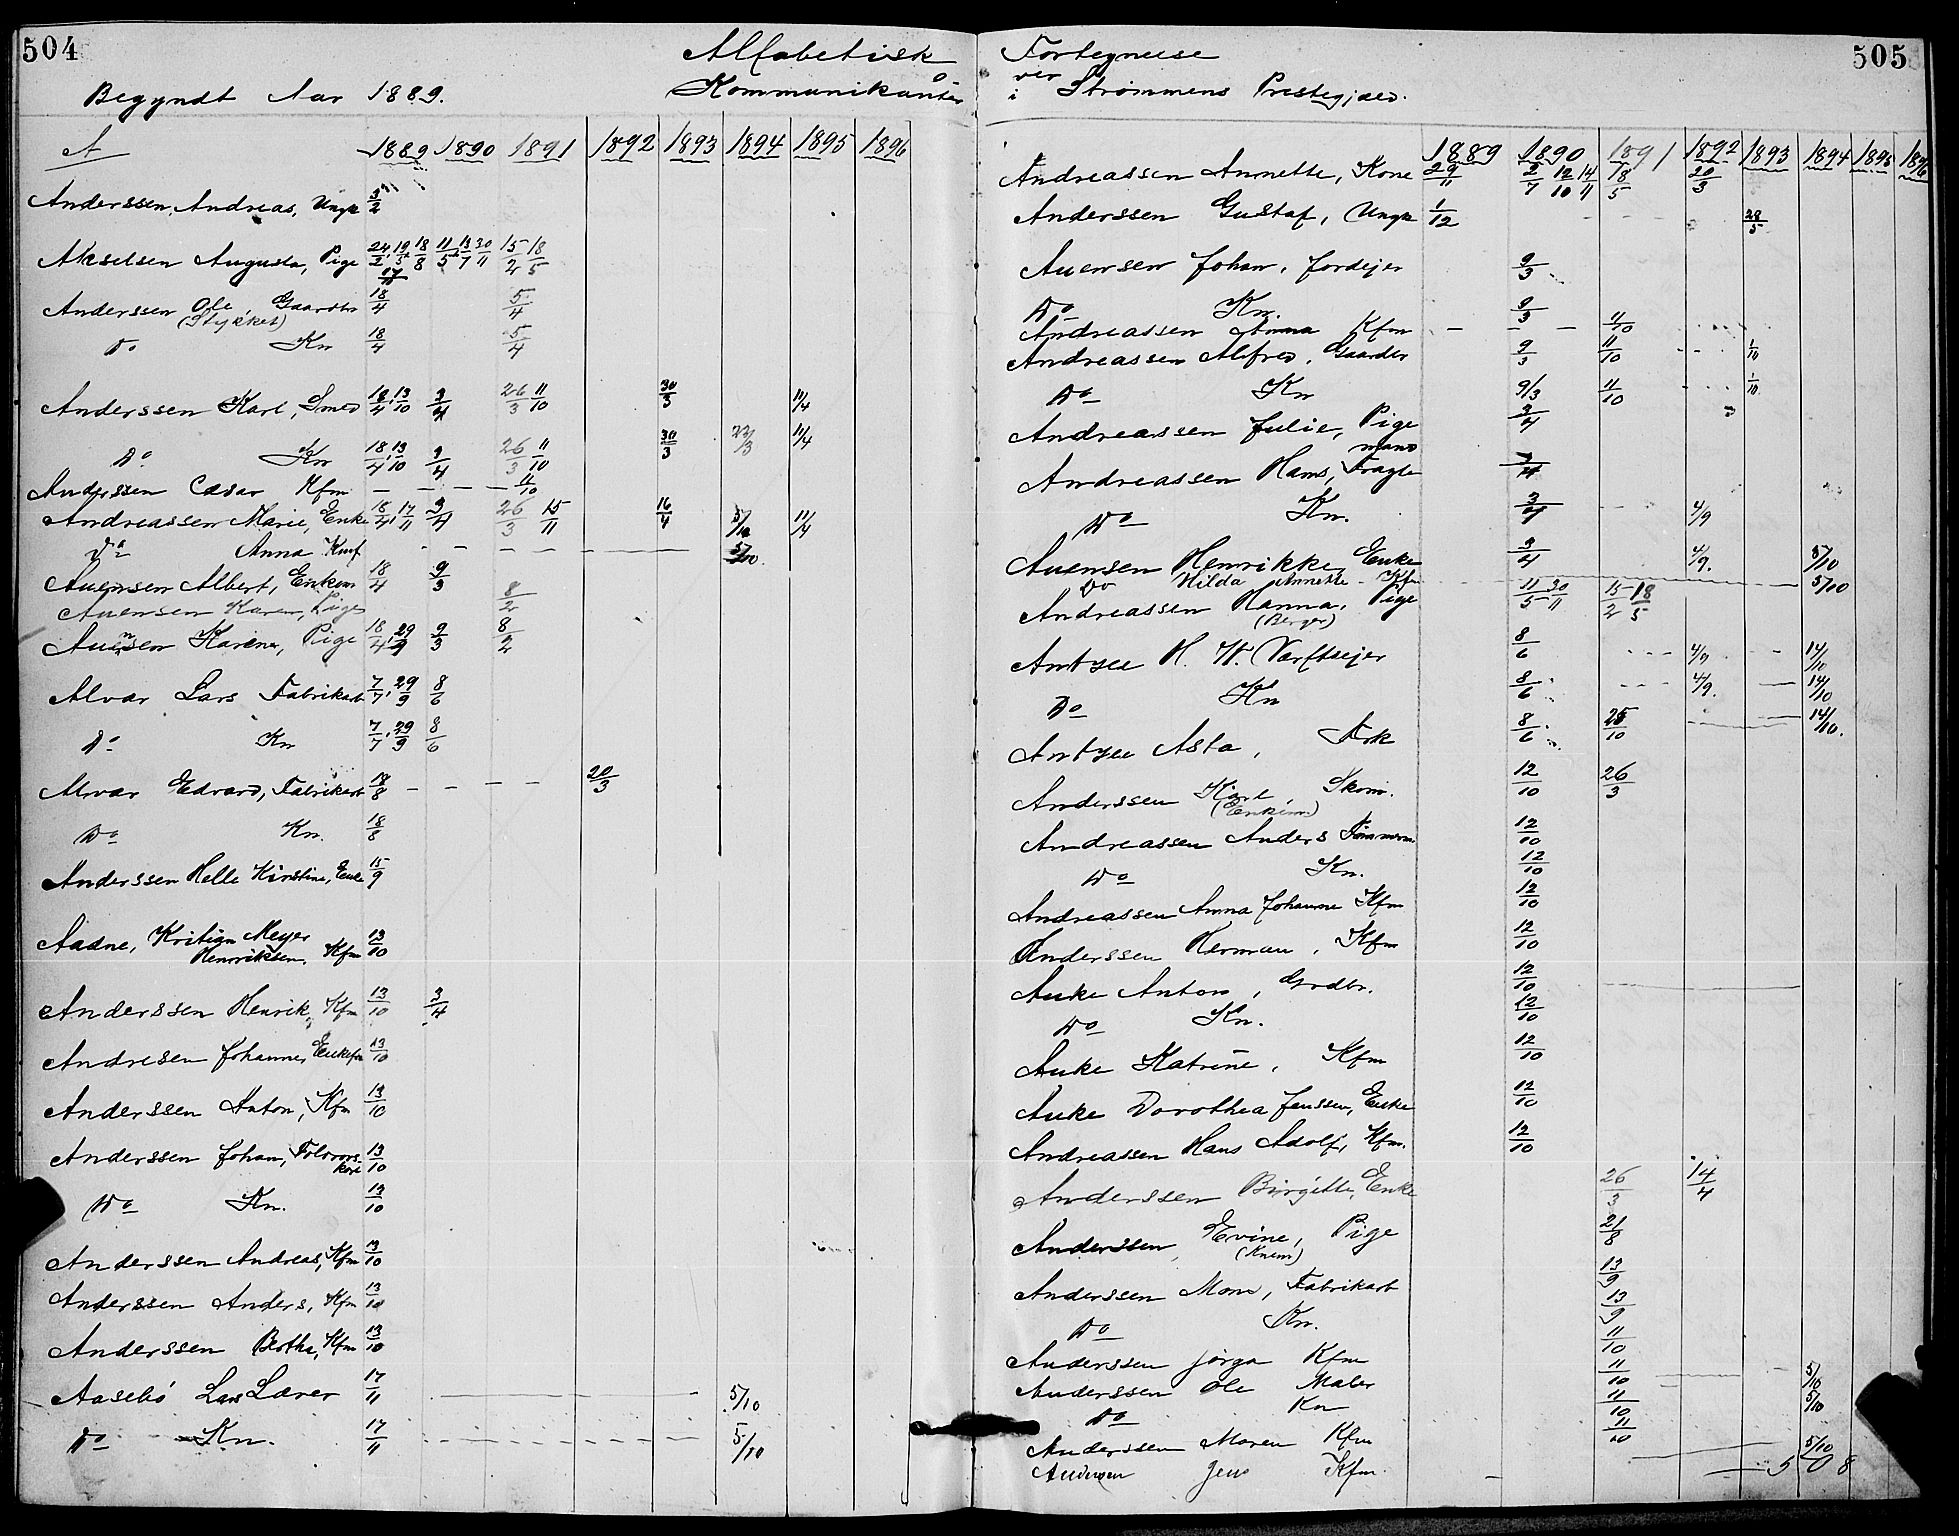 504
Alfabetisk
Begyndt Aar 1889.
Kommunikanter
A 1889 1890 1891 1892 1893 1894 1895 1896
Anderssen, Andreas, Ungk 3/2
Akselsen Augusta, Pige 24/2 19/5 18/8 11/5 13/7 30/11 15/2 18/5
17/11
Anderssen Ole Gaardbr 18/4 5/4
(Stykket)
Do Kn 18/4 5/4
Anderssen Karl, Smed 18/4 13/10 3/4 26/3 11/10 30/3 11/4
Do Kn 18/4 13/10 3/4 26/3 11/10 30/3 22/3 11/4
Anderssen Cæsar Kfm — — — — 11/10
Andreassen Marie, Enke 18/4 17/11 3/4 26/3 15/11 16/4 5/10 11/4
Do Anna Kmf - - - - - 5/10.
Auensen Albert, Enkem 18/4 9/3
Auensen Karen, Pige 8/2
Auensen Karene, Pige 18/4 29/9 9/3 8/2
Alvær Lars Fabrikarb 7/7 29/9 8/6
Do Kn 7/7 29/9 8/6
Alvær Edvard, Fabrikarb 18/8 - - - - 20/3
Do Kn. 18/8
Anderssen Helle Kirstine, Enke 15/9
Aadne, Kristian Meyer 13/10
Henriksen, Kfm
Anderssen Henrik, Kfm 13/10 3/4
Andresen Johannes Enkefm 13/10
Anderssen Anton, Kfm 13/10
Anderssen Johan, 13/10
Do Kn. 13/10
Anderssen Andreas, Kfm 13/10
Anderssen Anders, Kfm 13/10
Anderssen Berthe, Kfm 13/10
Aasebø Lars Lærer 17/11 5/10
Do Kn. 17/11 5/10
505
Fortegnelse
over
i Strømmens Prestegjæld.
1889 1890 1891 1892 1893 1894 1895 1896
Andreassen Annette, Kone 29/11 2/7 12/10 14/11 18/5 20/3
Anderssen Gustaf, Ungk 1/12 28/5
Auensen Johan, Jordejer 9/3
Do Kn. 9/3
Andreassen Anna Kfm — — — 11/10
Andreassen Alfred, Gaardbr 9/3 11/10 1/10
Do Kn 9/3 11/10 1/10
Andreassen Julie, Pige 3/4
mand
Andreassen Hans, Fragte 3/4
Do Kn. 3/4 4/9
Auensen Henrikke Enke 3/4 4/9. 5/10
Do Hilda Annette - Kfm 5/10
Andreassen Hanna, Pige 11/5 30/11 15/2 18/5
(Berger)
Antzee H. W. Værftsejer 8/6 4/9 14/10
Do Kn 8/6 4/9. 14/10
Antzee Asta, Frk 8/6 25/10 14/10.
Anderssen Karl Skom. 12/10 26/3
(Enkem)
Andreassen Anders Tømmerm. 12/10
Do Kn. 12/10
Andreassen Anna Johanne Kfm 12/10
Anderssen Herman, Kfm 12/10
Auke Anton, Grdbr. 12/10
Do Kn. 12/10
Auke Katrine, Kfm 12/10
Auke Dorothea Jenssen, Enke 12/10
Andreassen Hans Adolf, Kfm. 12/10
Anderssen Birgitte, Enke 26/3 14/4
Anderssen Evine, Pige 21/8
(Knem)
Anderssen Mons, Fabrikarb 13/9
Do Kn. 13/9
Anderssen Jørga Kfm 11/10
Anderssen Ole Maler 11/10 5/10
Do Kn 11/10 5/10
Anderssen Maren Kfm 11/10 5/10
Andersen Jens Kfm. — 508